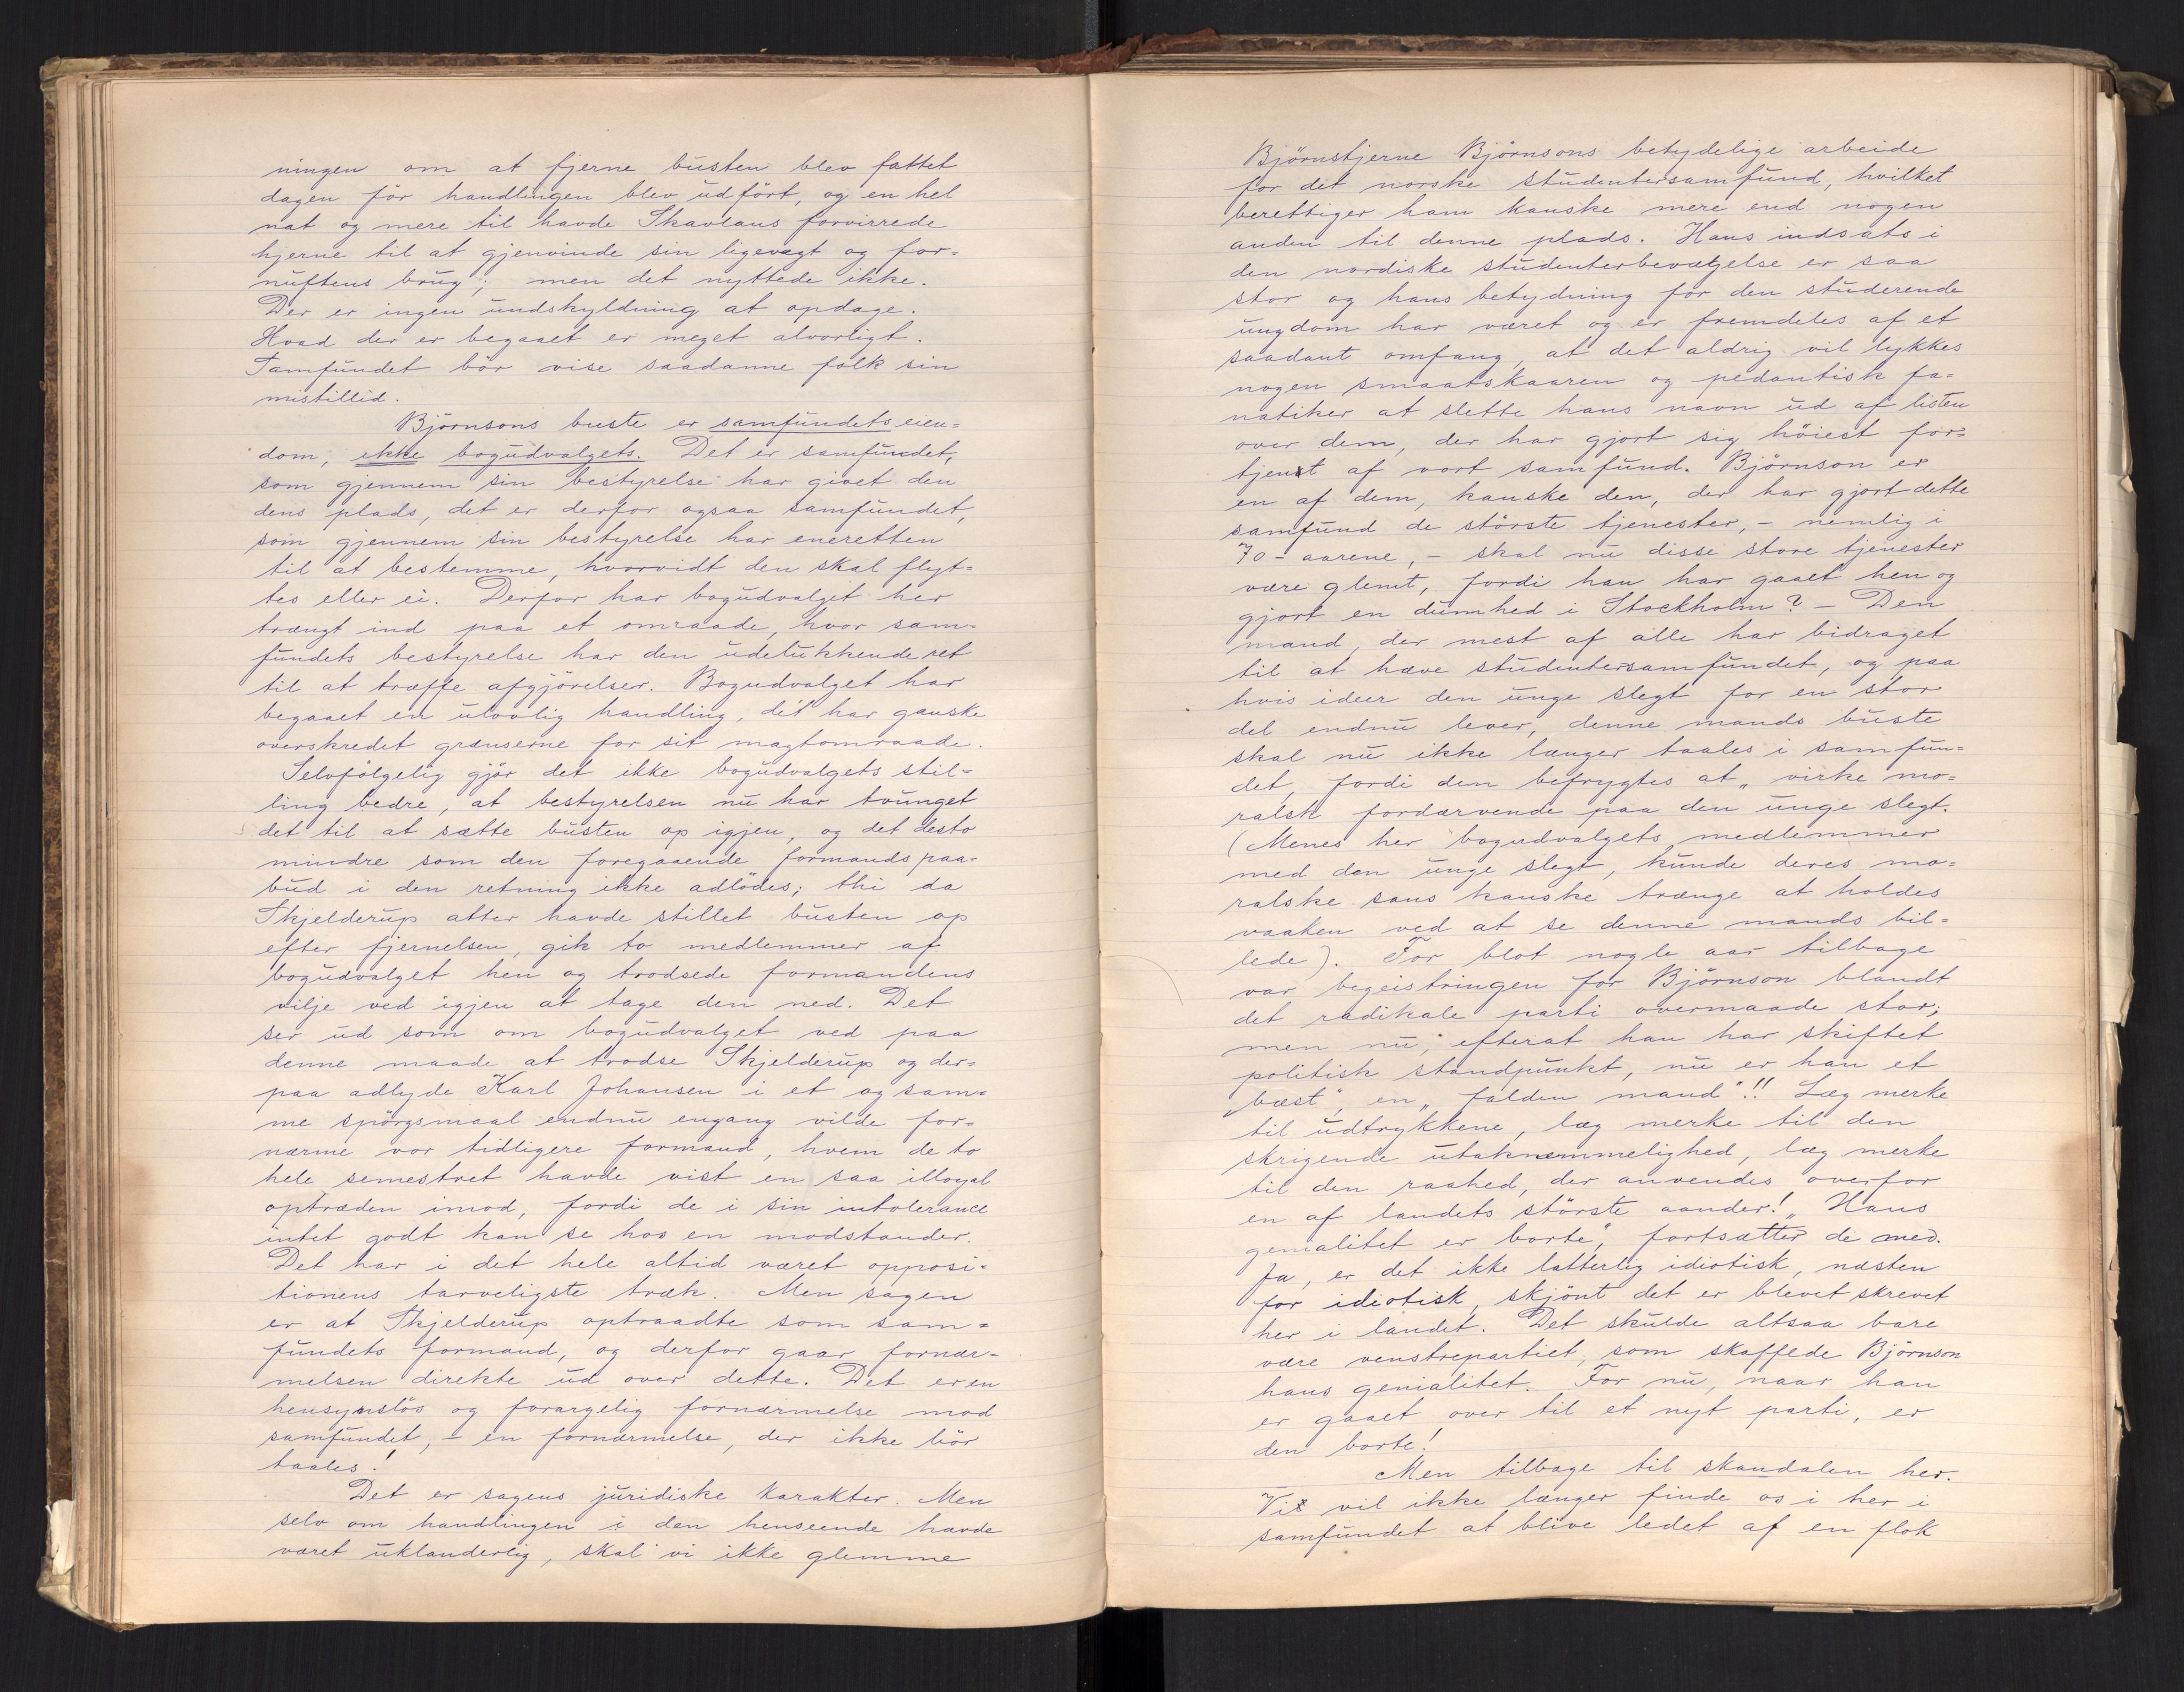 ningen om at fjerne busten blev fattet
dagen för handlingen blev udfört, og en hel
nat og mere til havde Skavlans forvirrede
hjerne til at gjenvinde sin ligevægt og for-
nuftens brug; men det nyttede ikke.
Der er ingen undskyldning at opdage.
Hvad der er begaaet er meget alvorligt.
Samfundet bör vise saadanne folk sin
mistillid.
Björnsons buste er samfundets eien-
dom, ikke bogudvalgets. Det er samfundet,
som gjennem sin bestyrelse har givet den
dens plads, det er derfor ogsaa samfundet,
som gjennem sin bestyrelse har eneretten
til at bestemme, hvorvidt den skal flyt-
tes eller ei. Derfor har bogudvalget her
trængt ind paa et omraade, hvor sam-
fundets bestyrelse har den udelukkende ret
til at træffe afgjörelser. Bogudvalget har
begaaet en ulovlig handling, det har ganske
overskredet grænserne for sit magtomraade.
Selvfölgelig gjör det ikke bogudvalgets stil-
ling bedre, at bestyrelsen nu har tvunget
det til at sætte busten op igjen, og det desto
mindre som den foregaaende formands paa-
bud i den retning ikke adlödes; thi da
Skjelderup atter havde stillet busten op
efter fjernelsen, gik to medlemmer af
bogudvalget hen og trodsede formandens
vilje ved igjen at tage den ned. Det
ser ud som om bogudvalget ved paa
denne maade at trodse Skjelderup og der-
paa adlyde Karl Johansen i et og sam-
me spörgsmaal endnu engang vilde for-
nærme vor tidligere formand, hvem de to
hele semestret havde vist en saa illoyal
optræden imod, fordi de i sin intolerance
intet godt kan se hos en modstander.
Det har i det hele altid været opposi-
tionens tarveligste træk. Men sagen
er at Skjelderup optraadte som sam-
fundets formand, og derfor gaar fornær-
melsen direkte ud over dette. Det er en
hensynslös og forargelig fornærmelse mod
samfundet, – en fornærmelse, der ikke bör
taales!
Det er sagens juridiske karakter. Men
selv om handlingen i den henseende havde
været uklanderlig, skal vi ikke glemme
Björnstjerne Björnsons betydelige arbeide
for det norske studentersamfund, hvilket
berettiger ham kanske mere end nogen
anden til denne plads. Hans indsats i
den nordiske studenterbevægelse er saa
stor og hans betydning for den studerende
ungdom har været og er fremdeles af et
saadant omfang, at det aldrig vil lykkes
nogen smaatskaaren og pedantisk fa-
natiker at slette hans navn ud af listen
over dem, der har gjort sig höiest for-
tjent af vort samfund. Björnson er
en af dem, kanske den, der har gjort dette
samfund de störste tjenester, – nemlig i
70-aarene, – skal nu disse store tjenester
være glemt, fordi han har gaaet hen og
gjort en dumhed i Stockholm? – Den
mand, der mest af alle har bidraget
til at hæve studentersamfundet, og paa
hvis ideer den unge slegt for en stor
del endnu lever, denne mands buste
skal nu ikke længer taales i samfun-
det, fordi den befrygtes at „virke mo-
ralsk fordærvende paa den unge slegt.
(Menes her bogudvalgets medlemmer
med den unge slegt, kunde deres mo-
ralske sans kanske trænge at holdes
vaaken ved at se denne mands bil-
lede). For blot nogle aar tilbage
var begeistringen for Björnson blandt
det radikale parti overmaade stor;
men nu, efterat han har skiftet
politisk standpunkt, nu er han et
„bæst“, en „falden mand“!! Læg merke
til udtrykkene, læg merke til den
skrigende utaknemmelighed, læg merke
til den raahed, der anvendes overfor
en af landets störste aander! „Hans
genialitet er borte“, fortsætter de med.
Ja, er det ikke latterlig idiotisk, næsten
for idiotisk, skjönt det er blevet skrevet
her i landet. Det skulde altsaa bare
være venstrepartiet, som skaffede Björnson
hans genialitet. For nu, naar han
er gaaet over til et nyt parti, er
den borte!
Men tilbage til skandalen her.
Vi vil ikke længer finde os i her i
samfundet at blive ledet af en flok